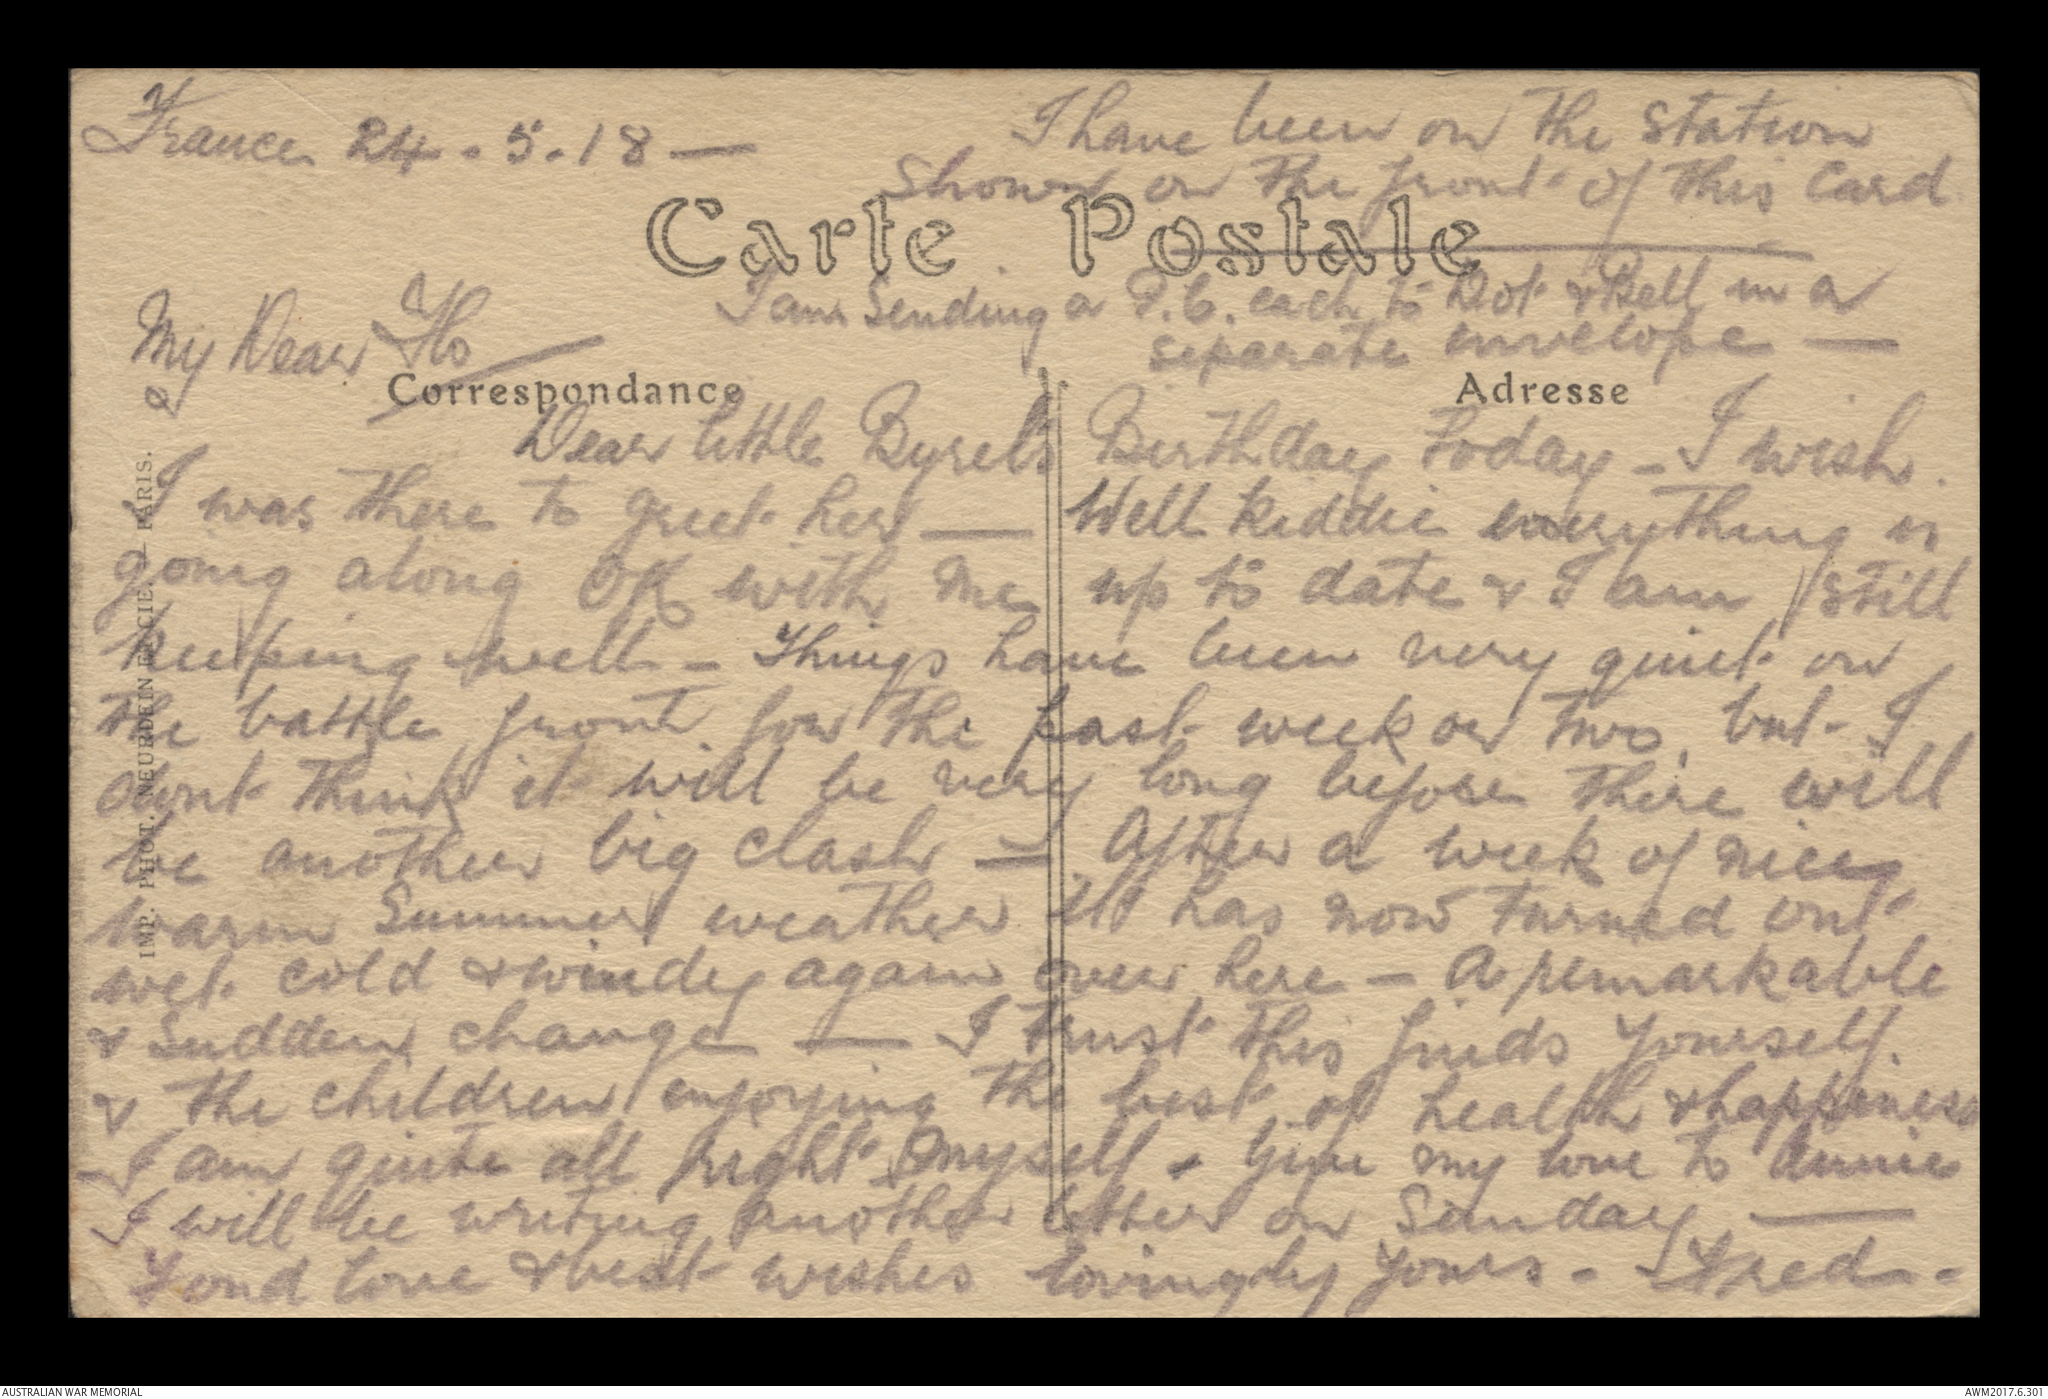 France 24.5.18 —
I have been on the station
shown on the front of this card
Carte Postale
I am sending a P.C. each to Dot & Bell in a
separate envelope —
My Dear Flo —
Correspondance
Adresse
Dear little Byrel's Birthday today - I wish
I was there to greet her — Well kiddie everything is
going along OK with me up to date & I am still
keeping well - Things have been very quiet on
the battle front for the past week or two, but I
dont think it will be very long before there will
be another big clash — After a week of nice
warm Summer weather it has now turned out
wet cold & windy again over here - A remarkable
& sudden change — I trust this finds yourself
& the children enjoying the best of health & happiness
I am quite all right myself - Give my love to Annie
I will be writing another letter on Sunday —
Fond love & best wishes lovingly yours - Fred -
IMP. PHOT. NEURDEIN ET CIE. — PARIS.
AUSTRALIAN WAR MEMORIAL
AWM2017.6.301